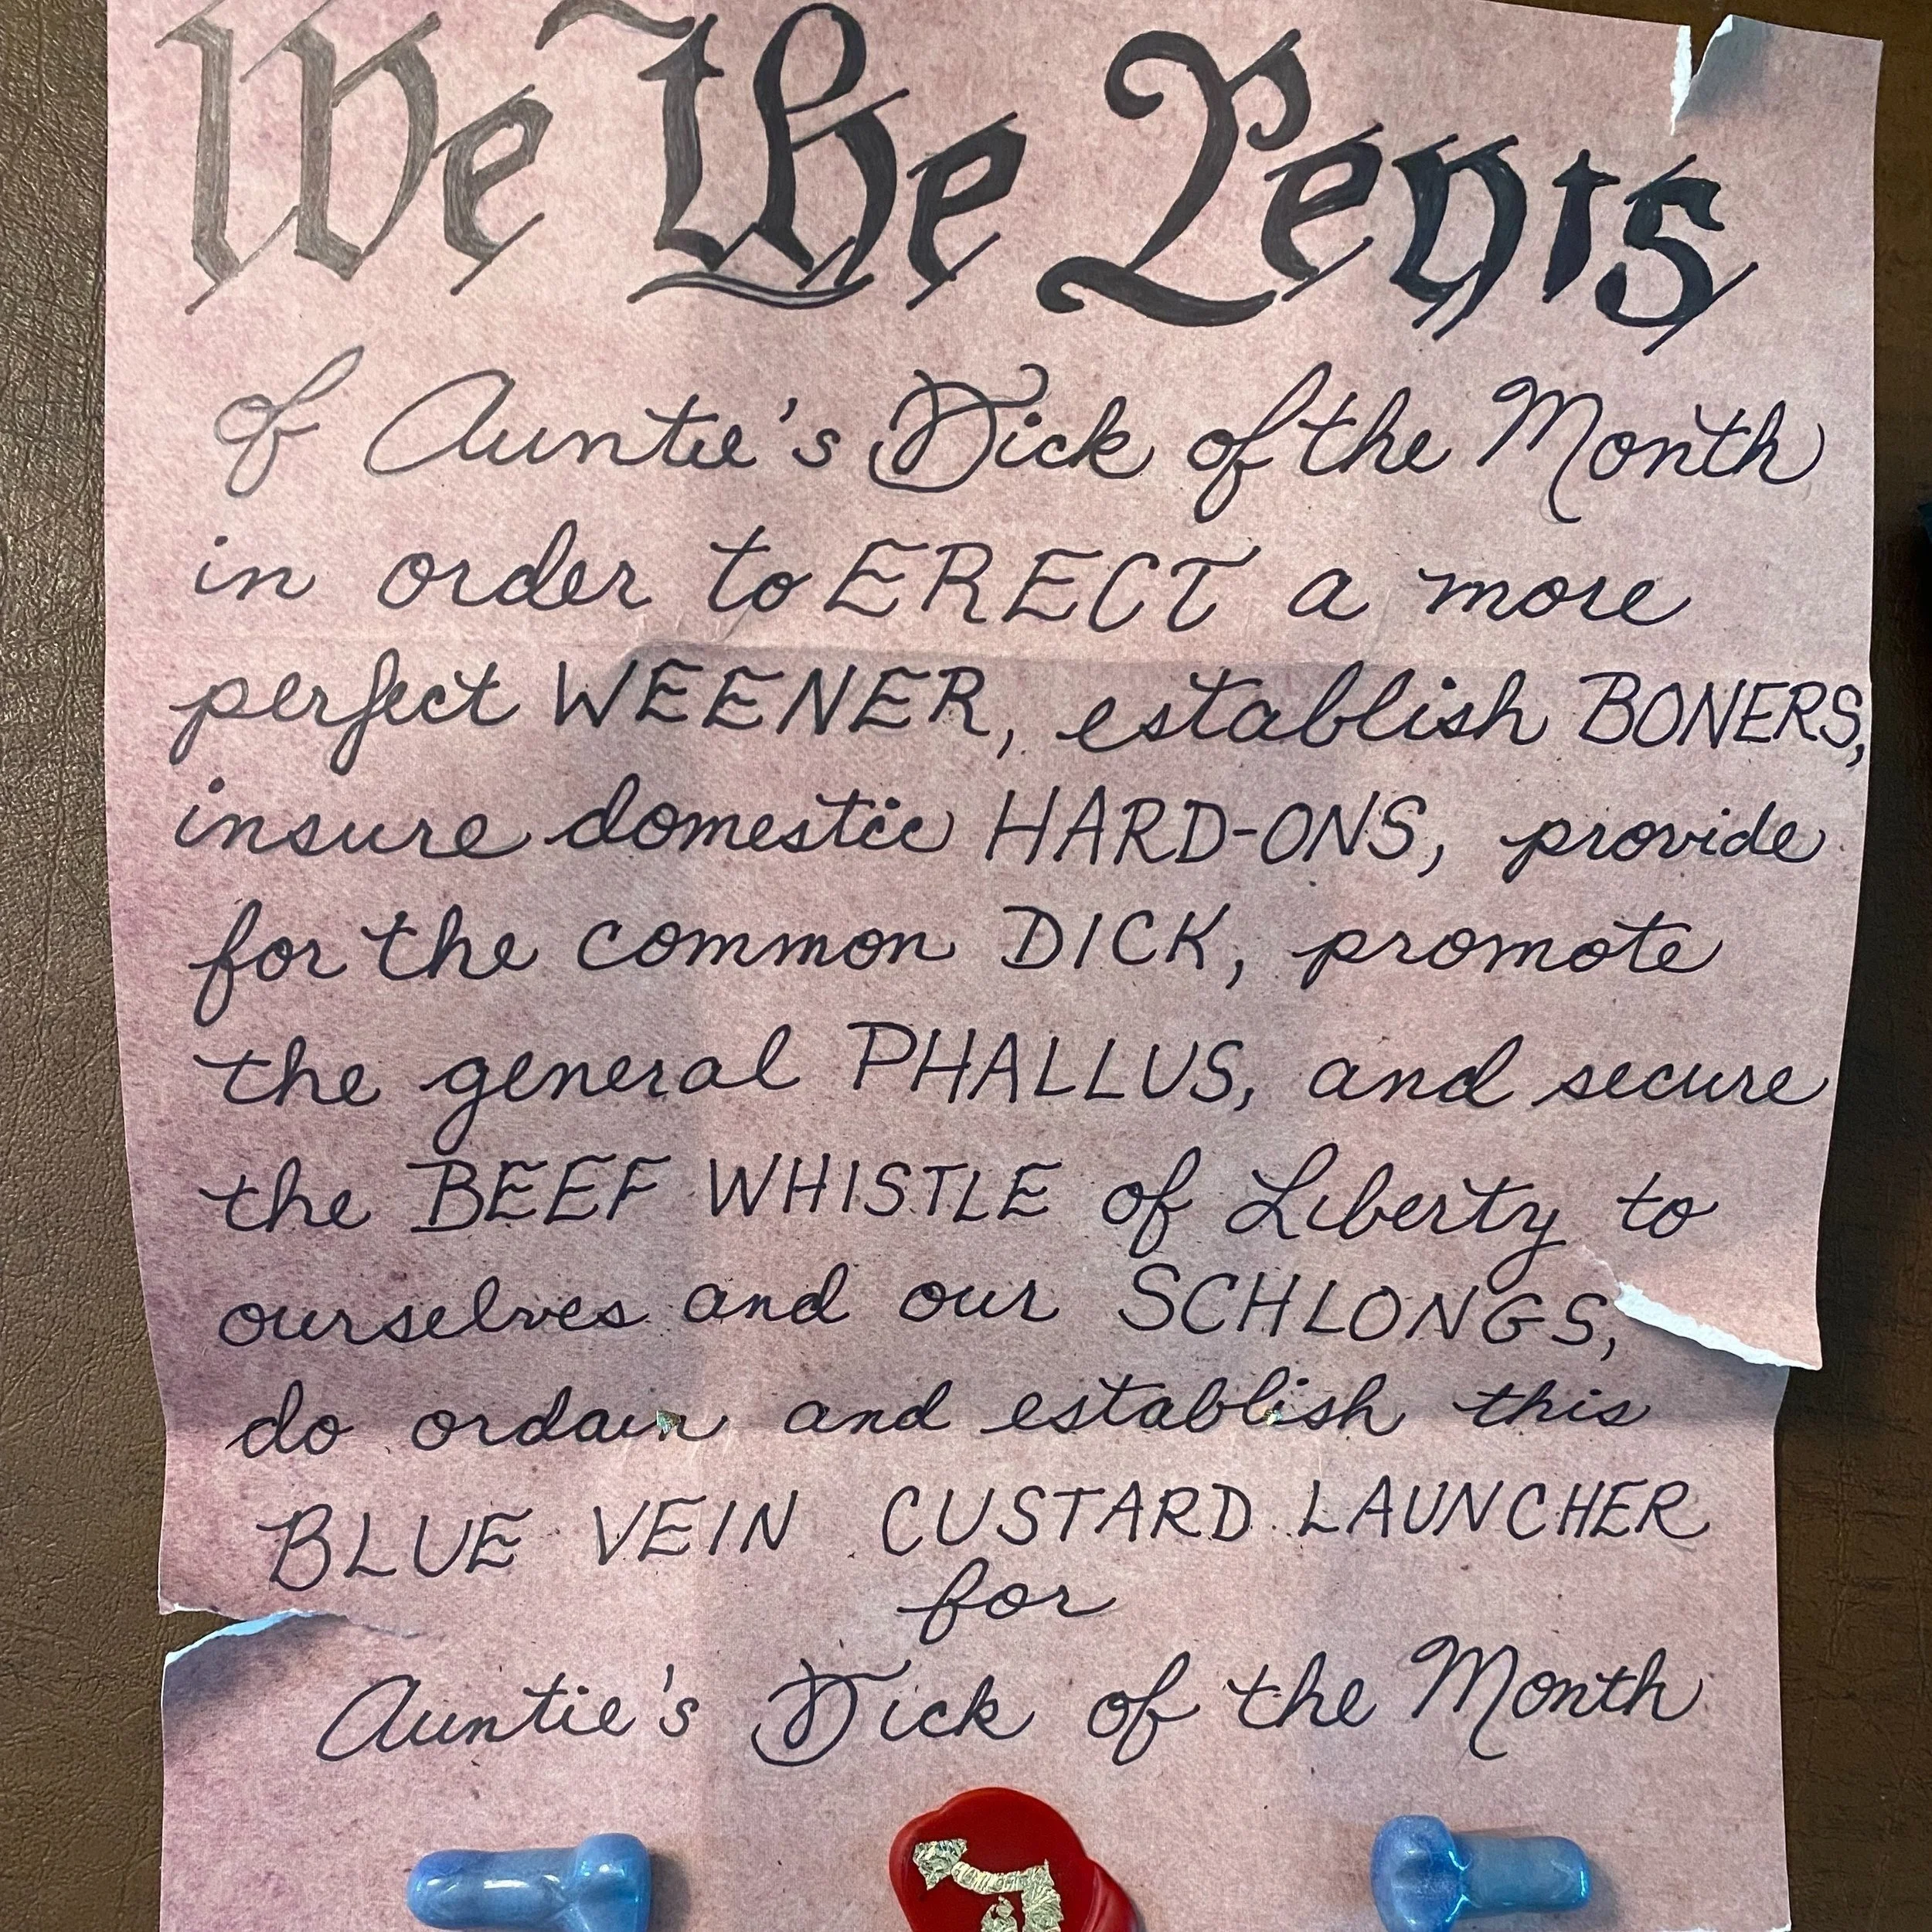 We the Penis
of Auntie's Dick of the Month
in order to ERECT a more
perfect WEENER, establish BONERS,
insure domestic HARD-ONS, provide
for the common DICK, promote
the general PHALLUS, and secure
the BEEF WHISTLE of Liberty to
ourselves and our SCHLONGS,
do ordain and establish this
BLUE VEIN CUSTARD LAUNCHER
for
Auntie's Dick of the Month